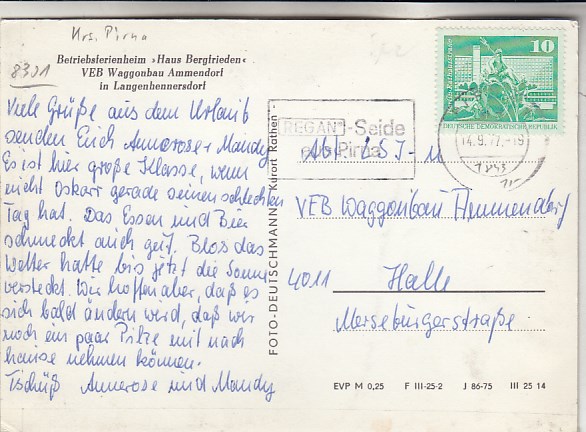 Krs. Pirna
8301
Betriebsferienheim »Haus Bergfrieden«
VEB Waggonbau Ammendorf
in Langenhennersdorf
Viele Grüße aus dem Urlaub
senden Euch Annerose + Mandy
Es ist hier große Klasse, wenn
nicht Oskar gerade seinen schlechten
Tag hat. Das Essen und Bier
schmeckt auch gut. Blos das
Wetter hatte bis jetzt die Sonne
versteckt. Wir hoffen aber, daß es
sich bald ändern wird, daß wir
noch ein paar Pilze mit nach
hause nehmen können.
Tschüß Annerose und Mandy
FOTO-DEUTSCHMANN, Kurort Rathen
REGANT-Seide
aus Pirna
10
DEUTSCHE DEMOKRATISCHE REPUBLIK
14.9.77.-19
Abt.
VEB Waggonbau Ammendorf
4011 Halle
Merseburgerstraße
EVP M 0,25 F III-25-2 J 86-75 III 25 14